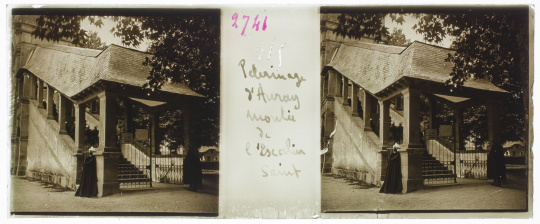 2741
115
Pelerinage
d'Auray
montée
de
l'Escalier
Saint